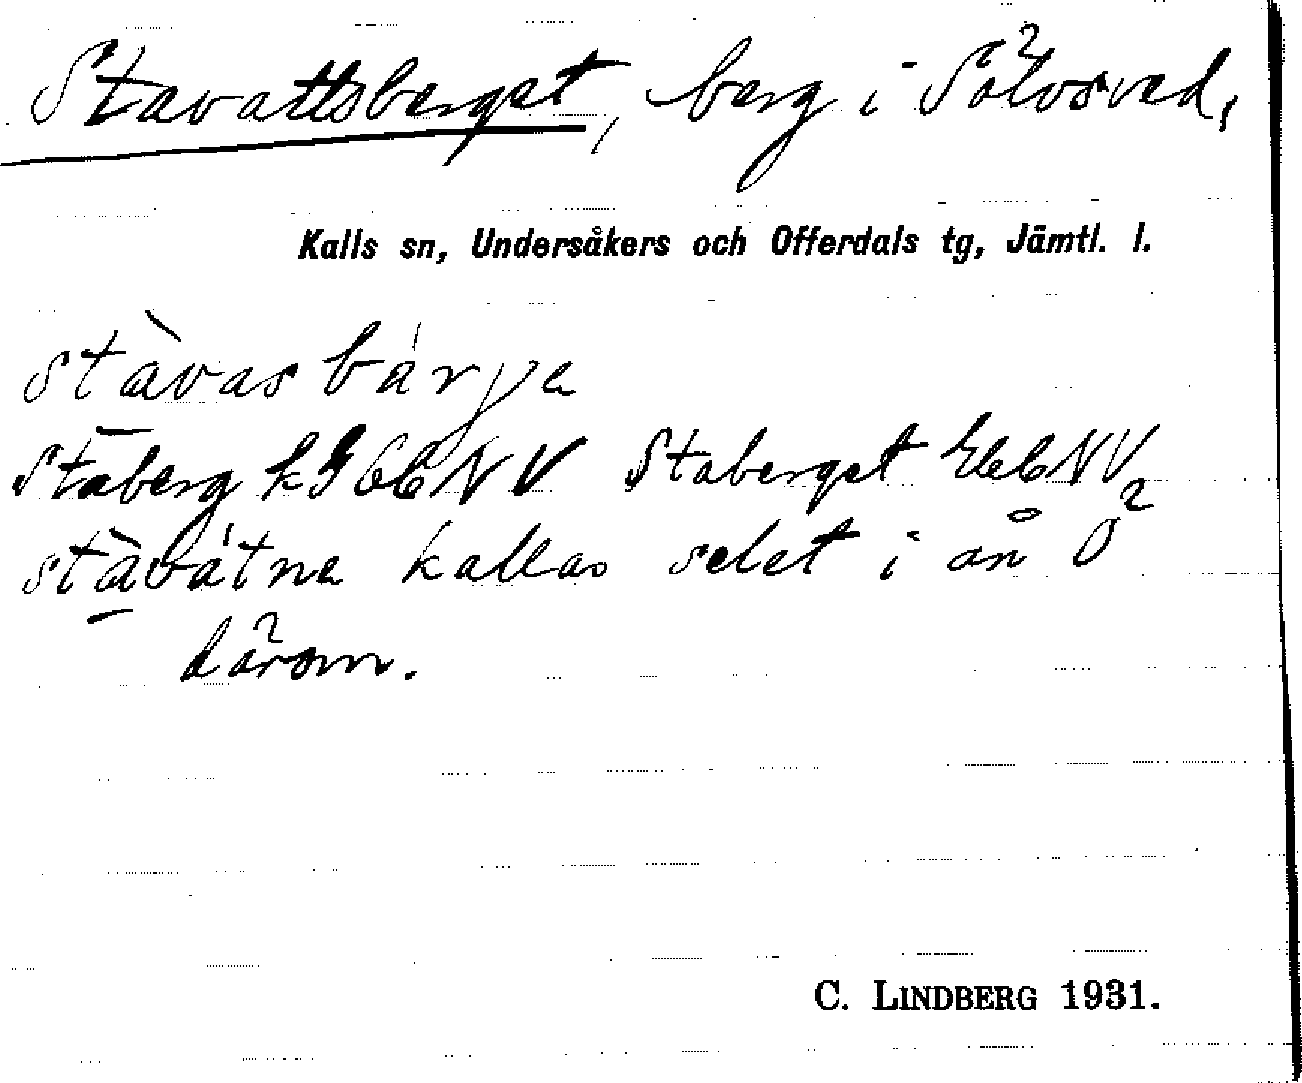 Stavattsberget, berg i Sölvsved,
Kalls sn, Undersåkers och Offerdals tg, Jämtl. l.
stàvasbárje
Staberg kg 66 NV Staberget Ek 66 NV
stàvátne kallas selet i ån Ö
därom.
C. LINDBERG 1931.